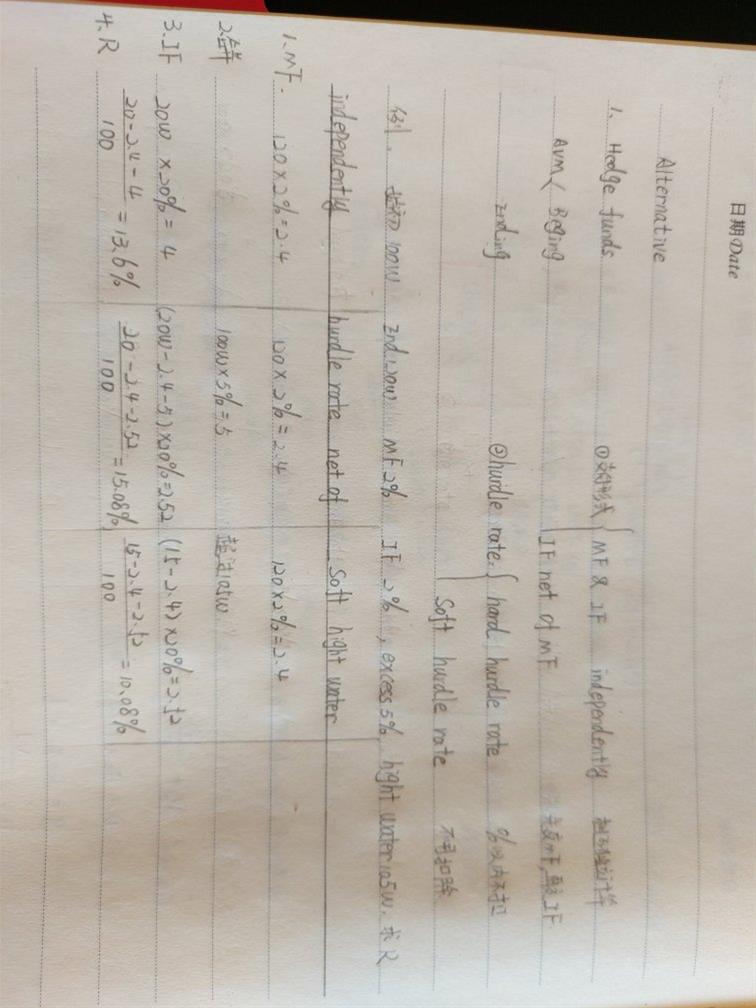 日期Date
Alternative
1. Hedge funds ①支付形式 { MF & IF independently
AUM < Beging IF net of MF 先交MF,再交IF
ending ②hurdle rate. { hard hurdle rate %以内不扣
Soft hurdle rate 不可扣除
例. 100W end.120W MF 2% IF 2%, excess 5%, hight water 105W. 求R
independently hurdle rate net of Soft hight water
1. MF. 120×2%=2.4 120×2%=2.4 120×2%=2.4
2. 100W×5%=5 超过105W
3. IF 20W×20%=4 (20W-2.4-5)×20%=2.52 (15-2.4)×20%=2.52
4. R 20-2.4-4/100=13.6% 20-2.4-2.52/100=15.08% 15-2.4-2.52/100=10.08%